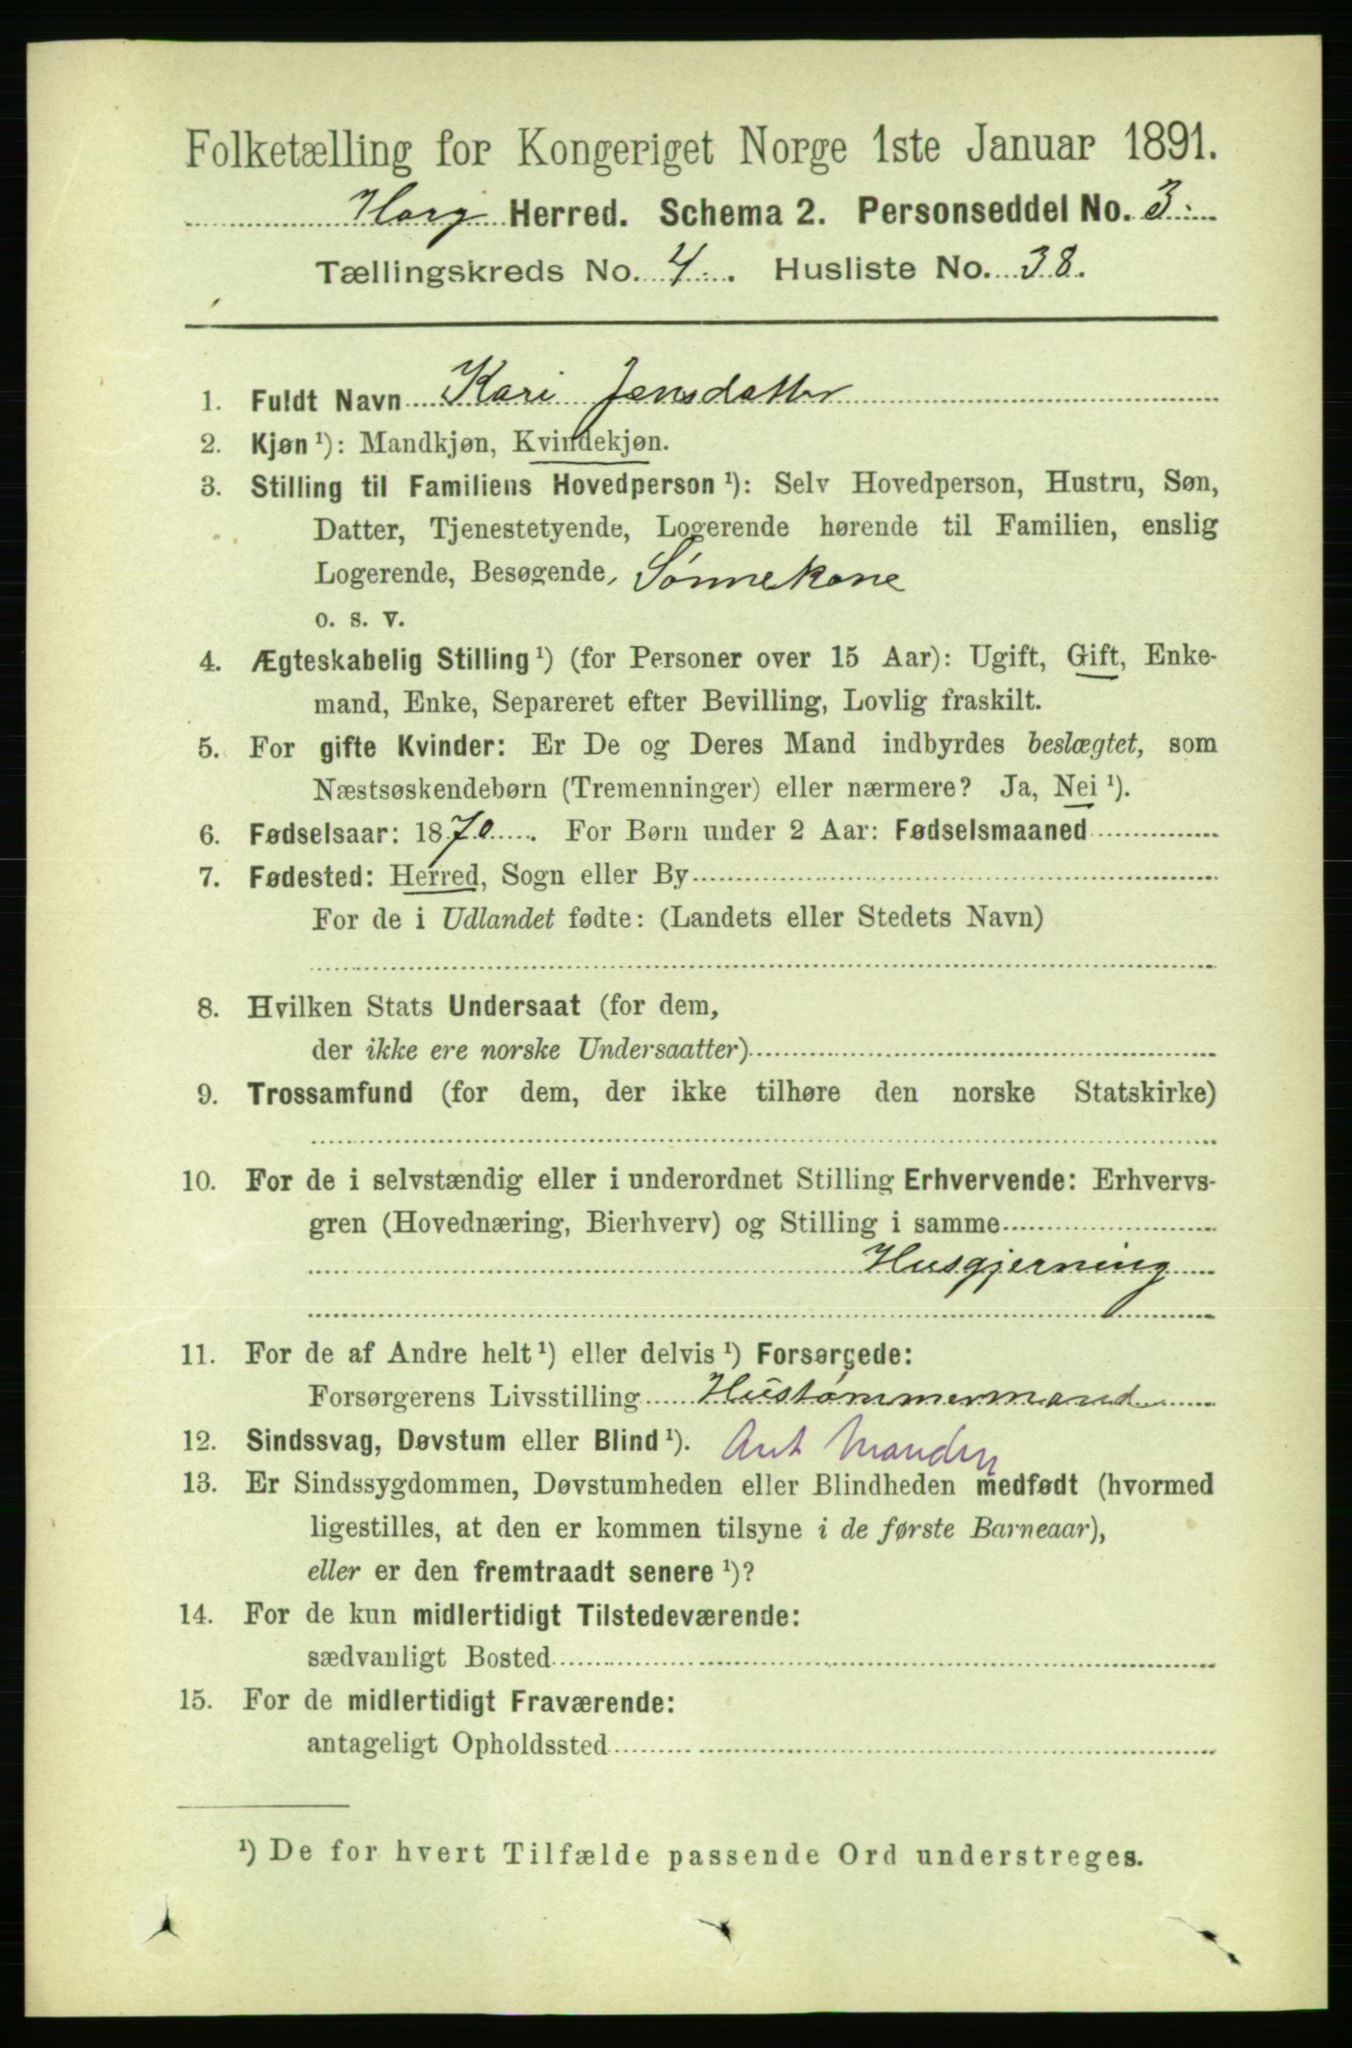 Folketælling for Kongeriget Norge 1ste Januar 1891.
Horg Herred. Schema 2. Personseddel No. 3.
Tællingskreds No. 4. Husliste No. 38.
1. Fuldt Navn Kari Jensdatter
2. Kjøn ¹): Mandkjøn, Kvindekjøn.
3. Stilling til Familiens Hovedperson ¹): Selv Hovedperson, Hustru, Søn,
Datter, Tjenestetyende, Logerende hørende til Familien, enslig
Logerende, Besøgende, Sønnekone
o. s. v.
4. Ægteskabelig Stilling ¹) (for Personer over 15 Aar): Ugift, Gift, Enke-
mand, Enke, Separeret efter Bevilling, Lovlig fraskilt.
5. For gifte Kvinder: Er De og Deres Mand indbyrdes beslægtet, som
Næstsøskendebørn (Tremenninger) eller nærmere? Ja, Nei ¹).
6. Fødselsaar: 1870. For Børn under 2 Aar: Fødselsmaaned
7. Fødested: Herred, Sogn eller By
For de i Udlandet fødte: (Landets eller Stedets Navn)
8. Hvilken Stats Undersaat (for dem,
der ikke ere norske Undersaatter)
9. Trossamfund (for dem, der ikke tilhøre den norske Statskirke)
10. For de i selvstændig eller i underordnet Stilling Erhvervende: Erhvervs-
gren (Hovednæring, Bierhverv) og Stilling i samme
Husgjerning
11. For de af Andre helt ¹) eller delvis ¹) Forsørgede:
Forsørgerens Livsstilling Hustømmermand
12. Sindssvag, Døvstum eller Blind ¹). Ant Manden
13. Er Sindssygdommen, Døvstumheden eller Blindheden medfødt (hvormed
ligestilles, at den er kommen tilsyne i de første Barneaar),
eller er den fremtraadt senere ¹)?
14. For de kun midlertidigt Tilstedeværende:
sædvanligt Bosted
15. For de midlertidigt Fraværende:
antageligt Opholdssted
¹) De for hvert Tilfælde passende Ord understreges.